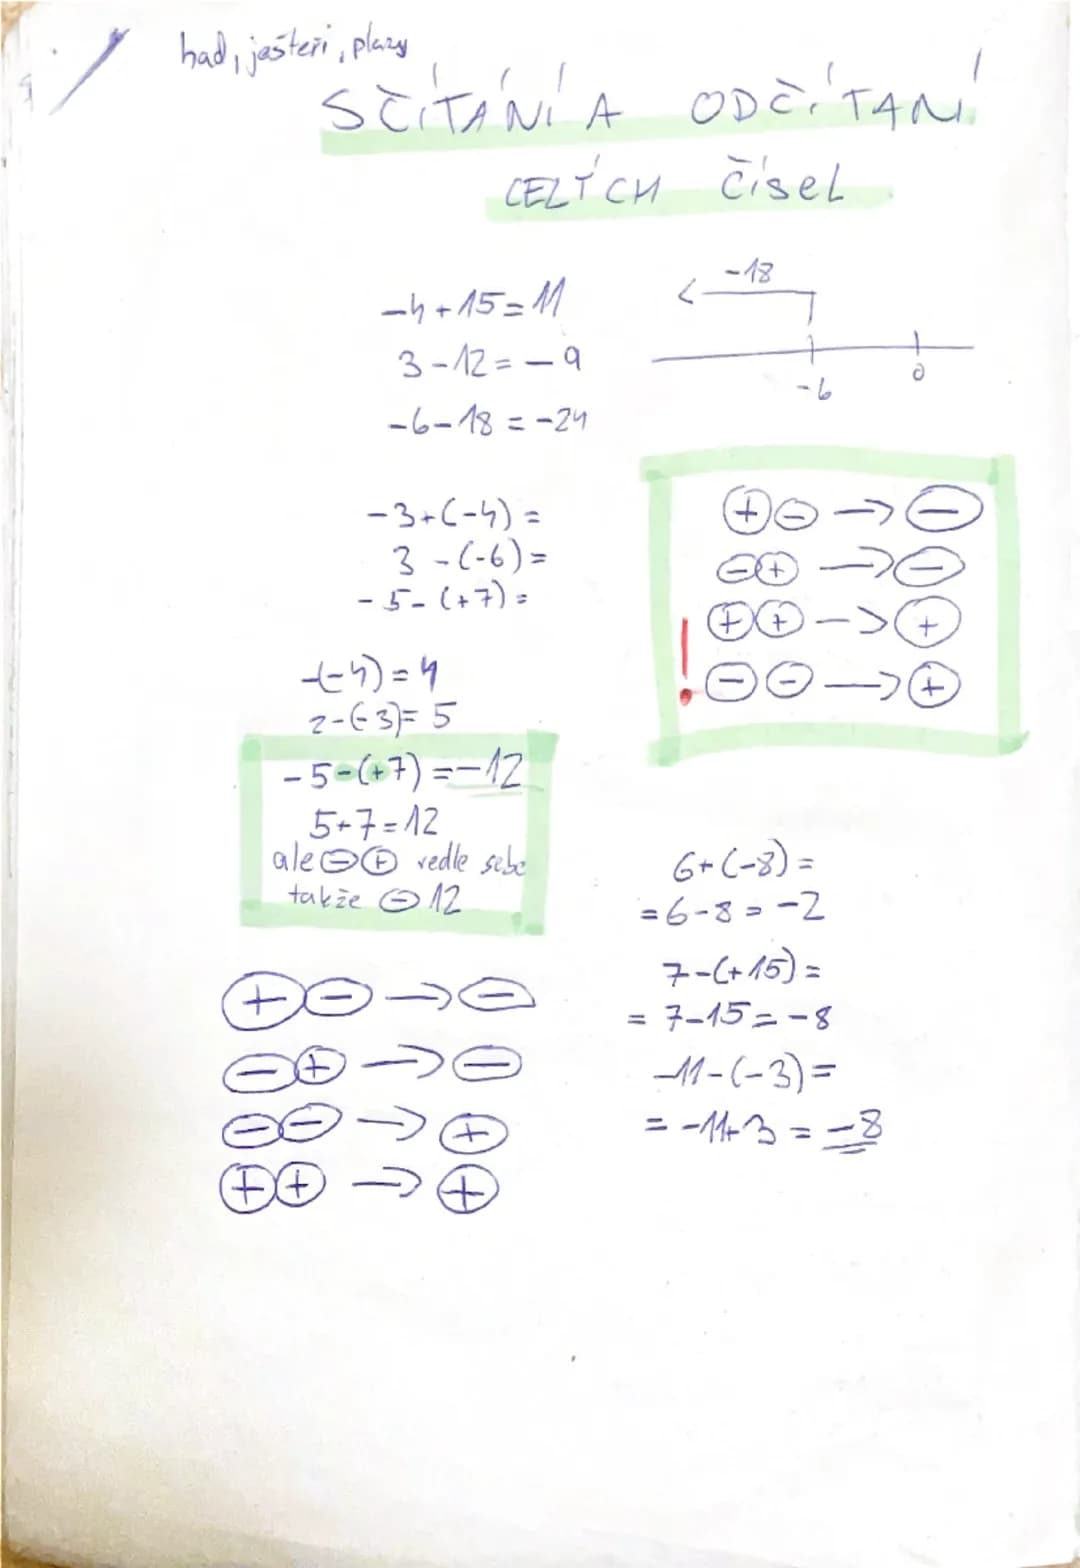 had, ještěři, plazy
SČÍTÁNÍ A ODČÍTÁNÍ
CELÝCH ČÍSEL
-4+15=11
3-12=-9
-6-18=-24
-18
-6 0
-3+(-4)=
3-(-6)=
-5-(+7)=
⊕⊖→⊖
⊖⊕→⊖
⊕⊕→⊕
! ⊖⊖→⊕
-(-4)=4
2-(-3)=5
-5-(+7)=-12
5+7=12
ale ⊖⊕ vedle sebe
takže ⊖12
⊕⊖→⊖
⊖⊕→⊖
⊖⊖→⊕
⊕⊕→⊕
6+(-8)=
=6-8=-2
7-(+15)=
=7-15=-8
-11-(-3)=
=-11+3=-8